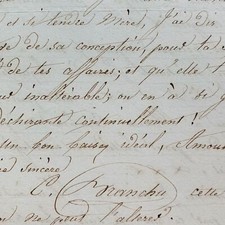 et si tendre Mère, j'ai du
de sa conception, pour ta
de tes affaires; et qu'elle t
inaltérable; ou en a bi
déchirante continuellement!
Un bon baiser idéal, Amour
sincère
C. Franchu cette
ne peut l'altérer.